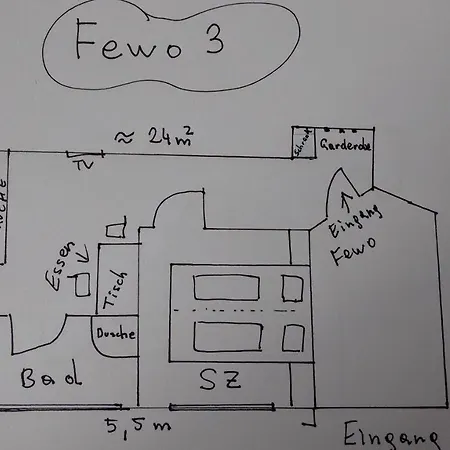 Fewo 3
≈ 24 m²
TV
Schrank
Garderobe
Eingang
Fewo
Essen
Tisch
Dusche
Bad
SZ
5,5 m
Eingang